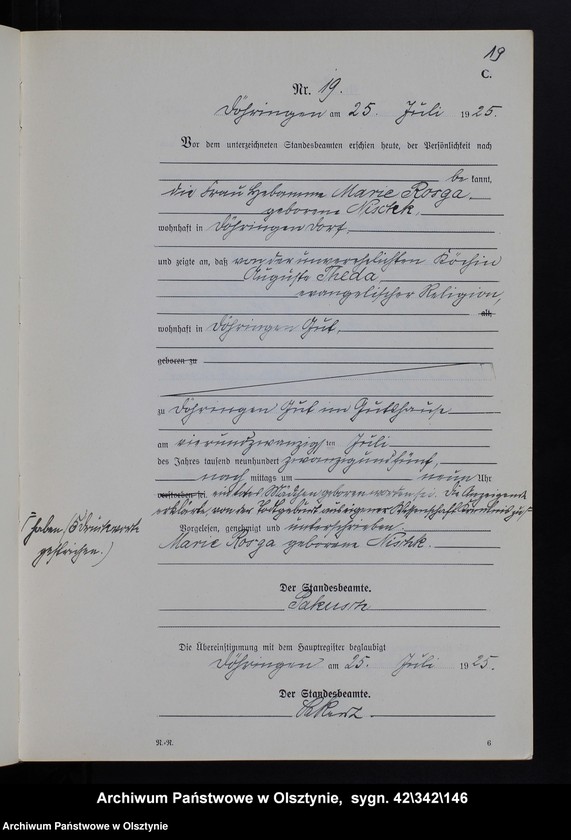 19
C.
Nr. 19.
Döhringen am 25. Juli 1925.
Vor dem unterzeichneten Standesbeamten erschien heute, der Persönlichkeit nach
be kannt,
die Frau Hebamme Marie Rosga,
geborene Nischk,
wohnhaft in Döhringen Dorf,
und zeigte an, daß von der unverehelichten Köchin
Auguste Theda
evangelischer Religion,
alt,
wohnhaft in Döhringen Gut,
geboren zu
zu Döhringen Gut im Gutshause
am vierundzwanzigsten Juli
des Jahres tausend neunhundert zwanzigundfünf,
nach mittags um neun Uhr
verstorben sei. ein totes Mädchen geboren worden sei. Die Anzeigende
erklärte, von der Totgeburt aus eigener Wissenschaft Kenntnis zu
haben. (5 Druckworte
gestrichen.)
Vorgelesen, genehmigt und unterschrieben.
Marie Rosga geborene Nischk.
Der Standesbeamte.
Die Übereinstimmung mit dem Hauptregister beglaubigt
Döhringen am 25. Juli 1925.
Der Standesbeamte.
N.-R.
6
Archiwum Państwowe w Olsztynie, sygn. 42\342\146
Archiwum Państwowe w Olsztynie